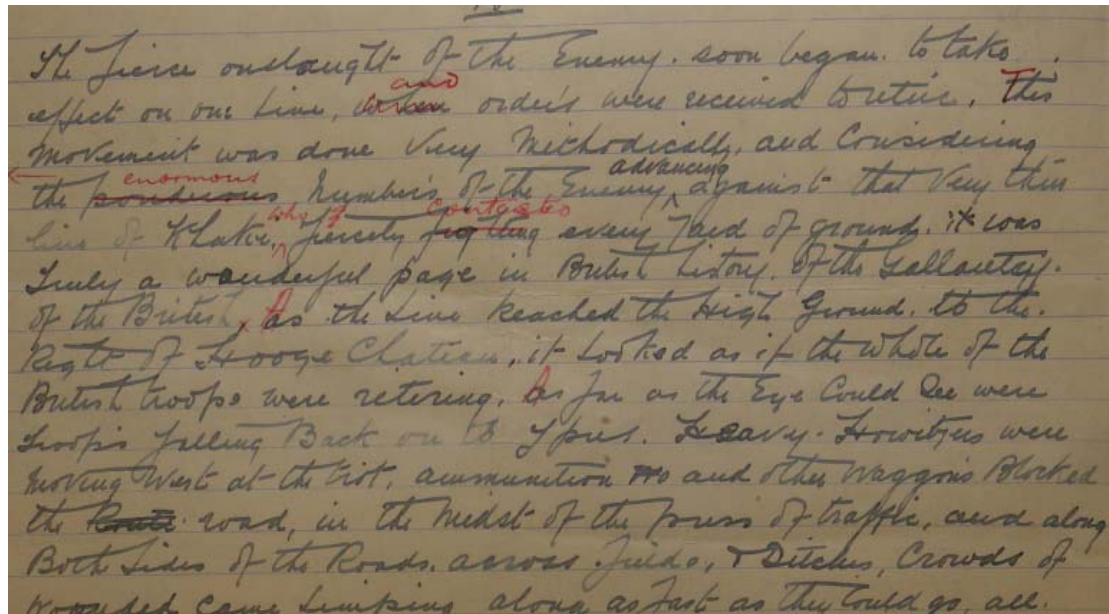 The fierce onslaught of the Enemy. soon began. to take
and
effect on our Line, when orders were received to retire. This
Movement was done Very Methodically, and Considering
enormous advancing
the ponderous Numbers of the Enemy against that Very thin
who contested
line of Khaki, fiercely fighting every Yard of ground. it was
Truly a wonderful page in British history. of the Gallantry.
of the British, As the Line Reached the High Ground. to the.
Right of Hooge Chateau, it Looked as if the whole of the
British troops were retiring. As far as the Eye Could See were
Troops falling Back on to Ypres. Heavy. Howitzers were
Moving West at the trot, ammunition and other Waggons Blocked
the Route road, in the Midst of the press of traffic, and along
Both Sides of the Roads. across fields, & Ditches, Crowds of
Wounded came Limping along as fast as they Could go all.